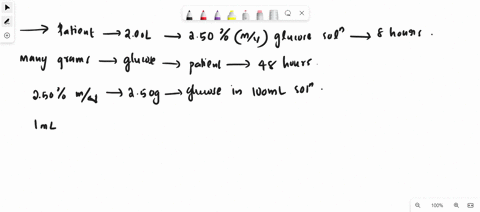 → Patient → 2.00L → 2.50 % (m/v) glucose solⁿ → 8 hours.
many grams → glucose → patient → 48 hours.
2.50 % m/v → 2.50g → glucose in 100mL solⁿ.
1mL
100%